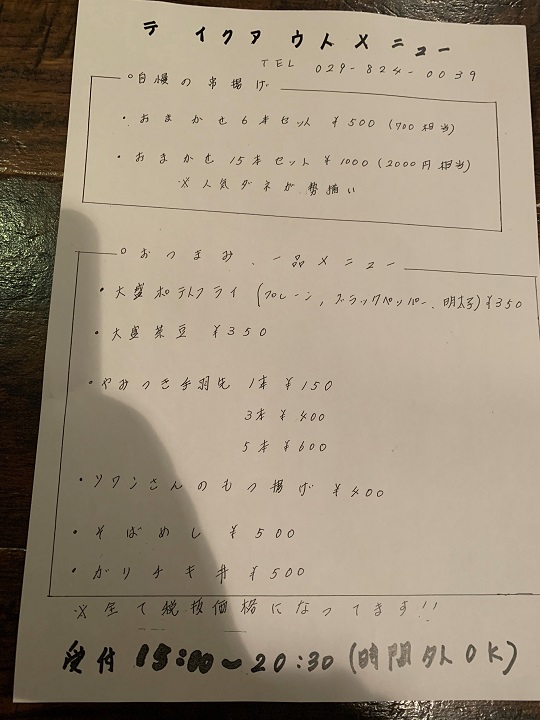 テイクアウトメニュー
TEL 029-824-0039
○自慢の串揚げ
・おまかせ6本セット ¥500(700相当)
・おまかせ15本セット ¥1000(2000円相当)
※人気ダネが勢揃い
○おつまみ、一品メニュー
・大盛ポテトフライ (プレーン,ブラックペッパー、明太子)¥350
・大盛茶豆 ¥350
・やみつき手羽先 1本 ¥150
3本 ¥400
5本 ¥600
・ソワンさんのもつ揚げ ¥400
・そばめし ¥500
・ガリチキ丼 ¥500
※全て税抜価格になってます!!
受付 15:00~20:30(時間外OK)